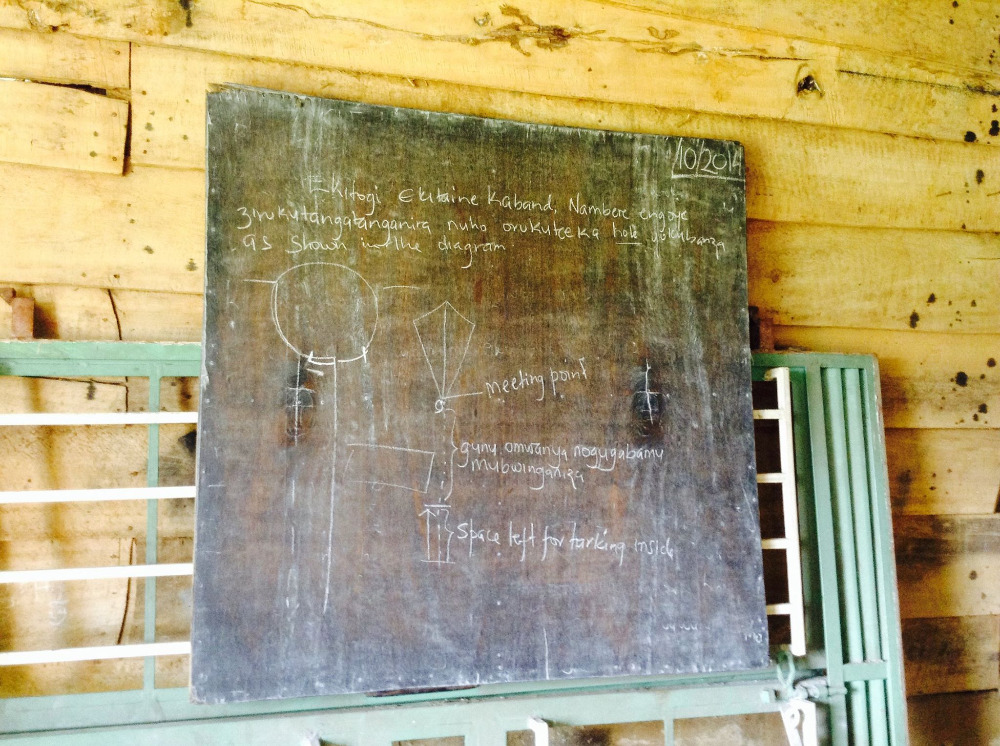 /10/2014
Ekitogi Ekitaine Kaband, Nambere engoye
zirukutangatanganira nuho orukuteeka hole
as shown in the diagram.
meeting point
gunu omwanya nogugabamu
mubwinganiza
Space left for tarking inside